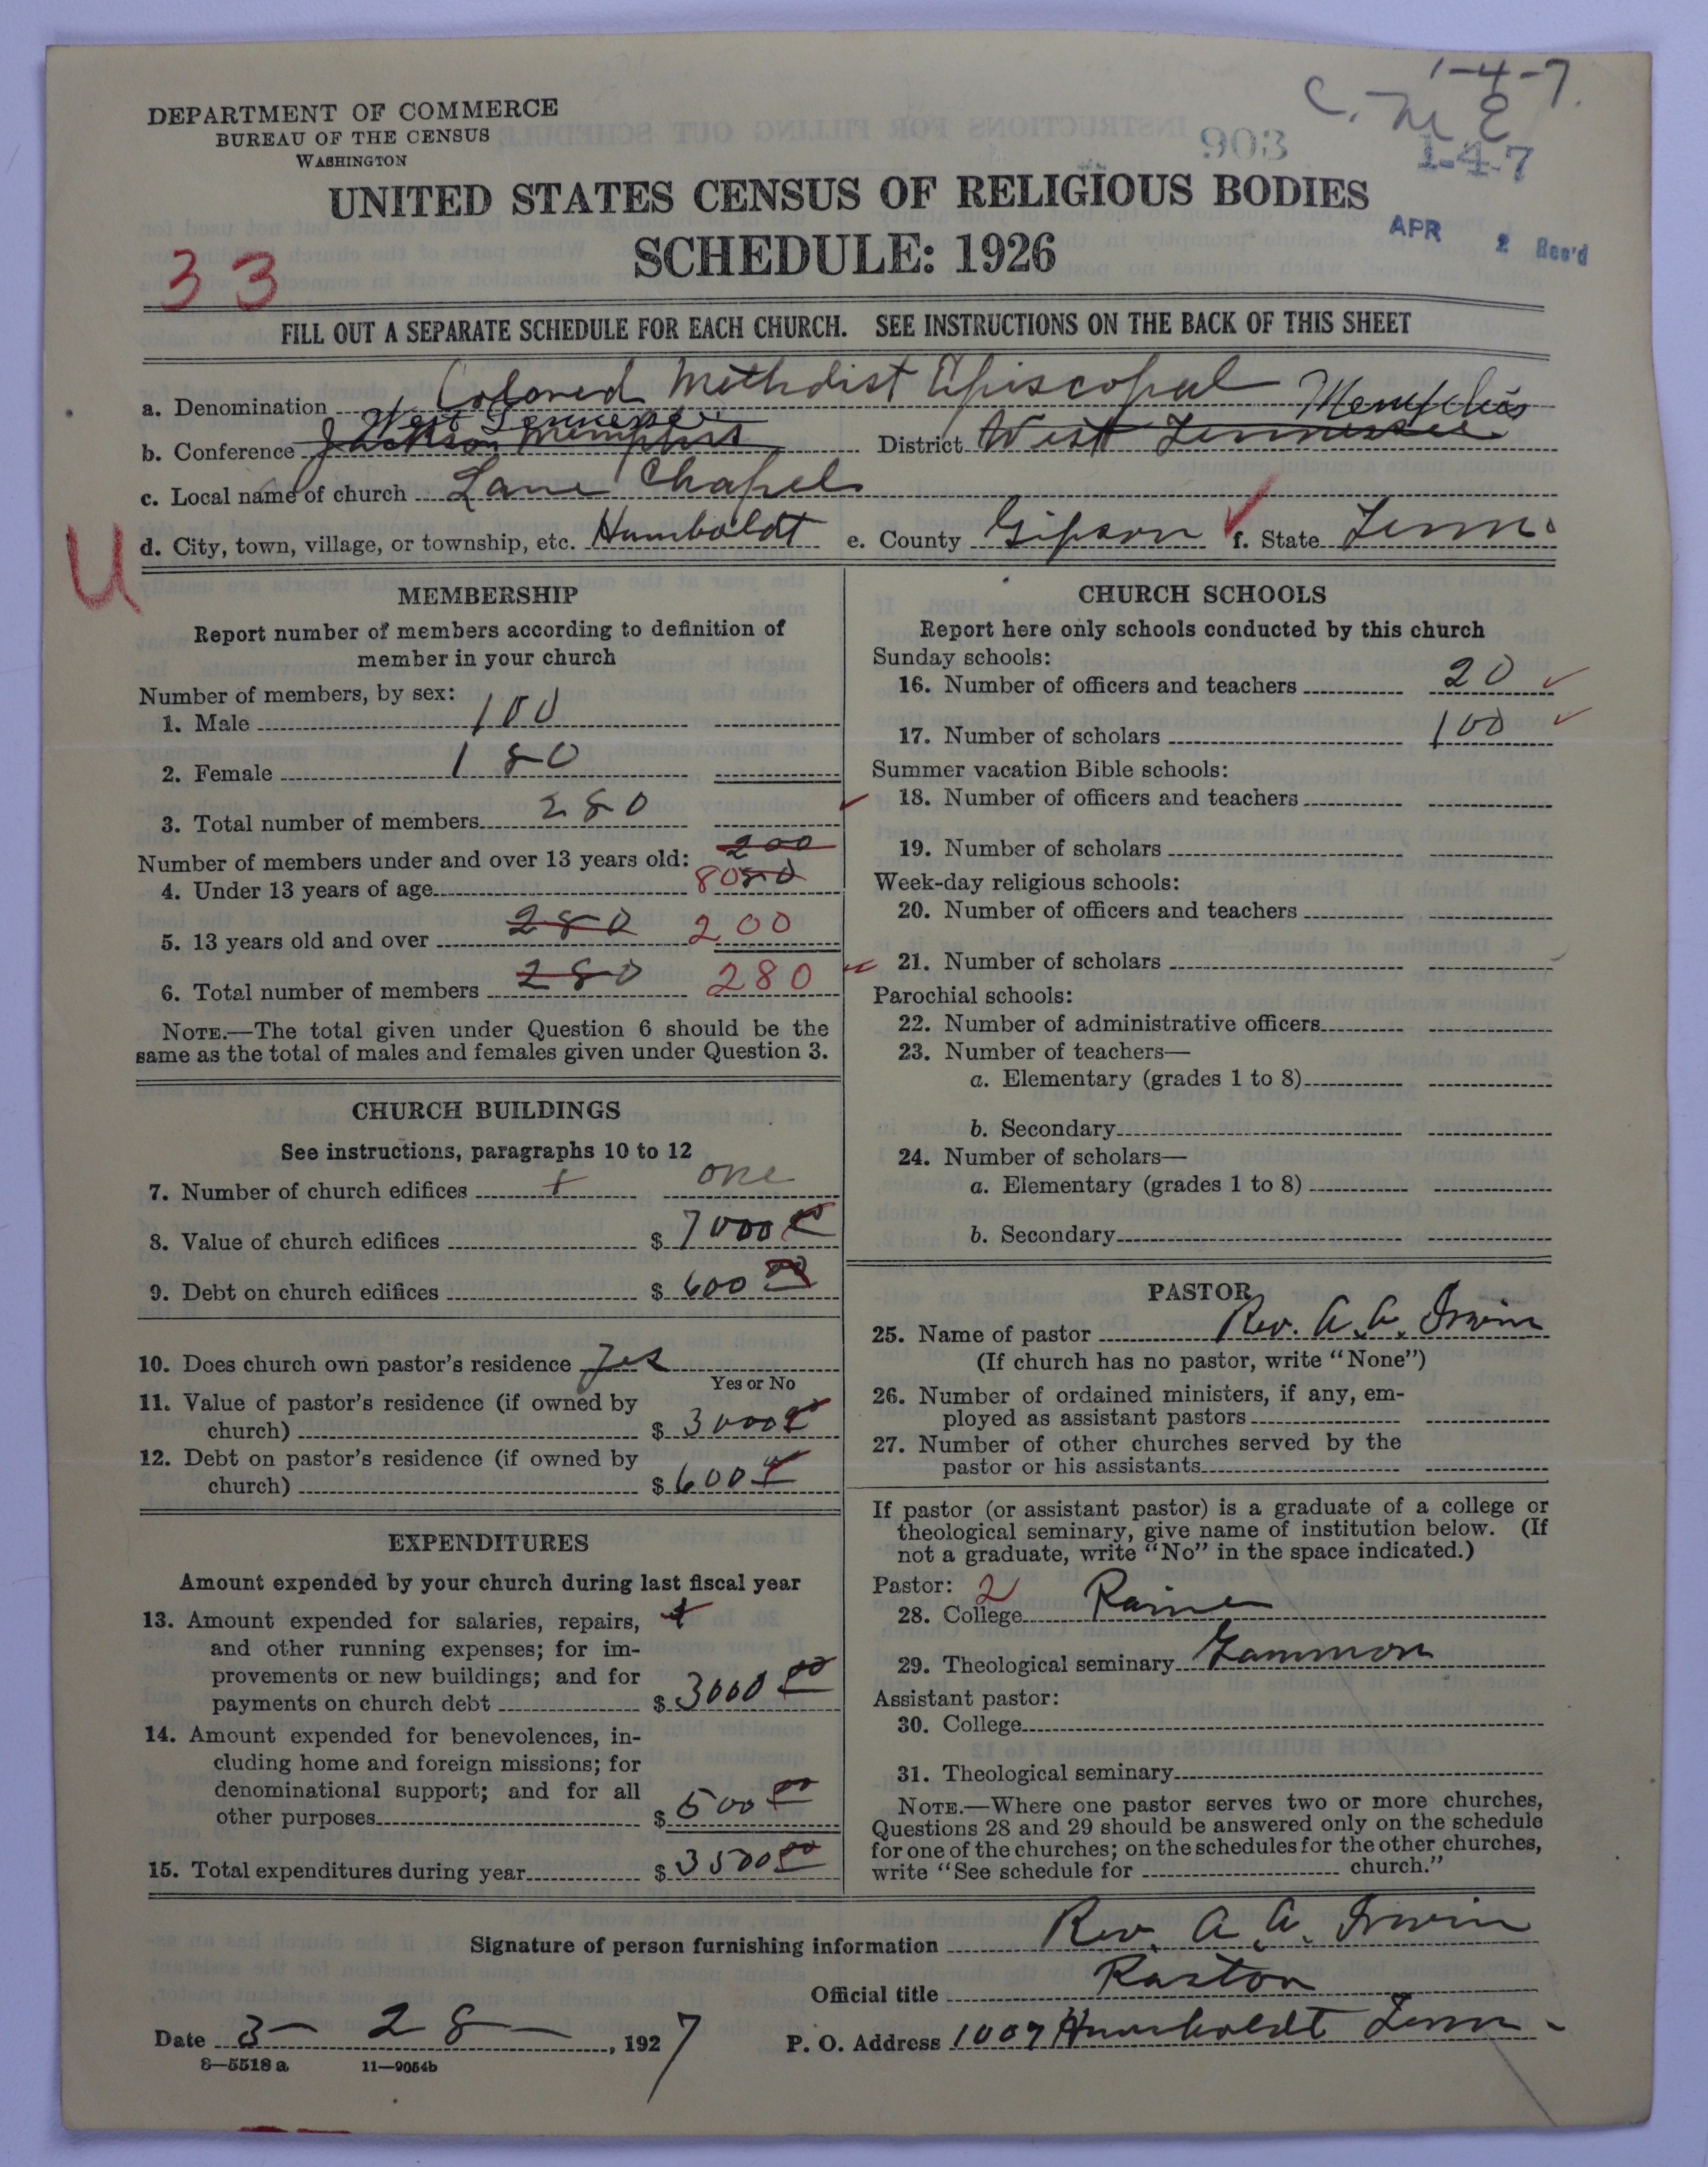 1-4-7.
C. M E
903
1-4-7
DEPARTMENT OF COMMERCE
BUREAU OF THE CENSUS
WASHINGTON
UNITED STATES CENSUS OF RELIGIOUS BODIES
SCHEDULE: 1926
APR 2 Rec'd
33
FILL OUT A SEPARATE SCHEDULE FOR EACH CHURCH. SEE INSTRUCTIONS ON THE BACK OF THIS SHEET
a. Denomination Colored Methodist Episcopal
West Tennessee Memphis
b. Conference Jackson Memphis District West Tennessee
c. Local name of church Lane Chapel
d. City, town, village, or township, etc. Humboldt e. County Gipson f. State Tenn.
U
MEMBERSHIP
Report number of members according to definition of
member in your church
Number of members, by sex:
1. Male 100
2. Female 180
3. Total number of members 280
200
Number of members under and over 13 years old:
4. Under 13 years of age 80 80
5. 13 years old and over 280 200
6. Total number of members 280 280
NOTE.—The total given under Question 6 should be the
same as the total of males and females given under Question 3.
CHURCH BUILDINGS
See instructions, paragraphs 10 to 12
7. Number of church edifices 1 one
8. Value of church edifices $ 7000 00
9. Debt on church edifices $ 600 00
10. Does church own pastor's residence Yes
Yes or No
11. Value of pastor's residence (if owned by
church) $ 3000 00
12. Debt on pastor's residence (if owned by
church) $ 600
EXPENDITURES
Amount expended by your church during last fiscal year
13. Amount expended for salaries, repairs,
and other running expenses; for im-
provements or new buildings; and for
payments on church debt $ 3000 00
14. Amount expended for benevolences, in-
cluding home and foreign missions; for
denominational support; and for all
other purposes $ 500 00
15. Total expenditures during year $ 3500 00
CHURCH SCHOOLS
Report here only schools conducted by this church
Sunday schools:
16. Number of officers and teachers 20
17. Number of scholars 100
Summer vacation Bible schools:
18. Number of officers and teachers
19. Number of scholars
Week-day religious schools:
20. Number of officers and teachers
21. Number of scholars
Parochial schools:
22. Number of administrative officers
23. Number of teachers—
a. Elementary (grades 1 to 8)
b. Secondary
24. Number of scholars—
a. Elementary (grades 1 to 8)
b. Secondary
PASTOR
25. Name of pastor Rev. A. A. Irwin
(If church has no pastor, write "None")
26. Number of ordained ministers, if any, em-
ployed as assistant pastors
27. Number of other churches served by the
pastor or his assistants
If pastor (or assistant pastor) is a graduate of a college or
theological seminary, give name of institution below. (If
not a graduate, write "No" in the space indicated.)
Pastor: 2
28. College
29. Theological seminary Gammon
Assistant pastor:
30. College
31. Theological seminary
NOTE.—Where one pastor serves two or more churches,
Questions 28 and 29 should be answered only on the schedule
for one of the churches; on the schedules for the other churches,
write "See schedule for church."
Signature of person furnishing information Rev. A. A. Irwin
Official title Pastor
Date 3-28-, 1927 P. O. Address 1007 Humboldt Tenn-
8—5518 a 11—9054b